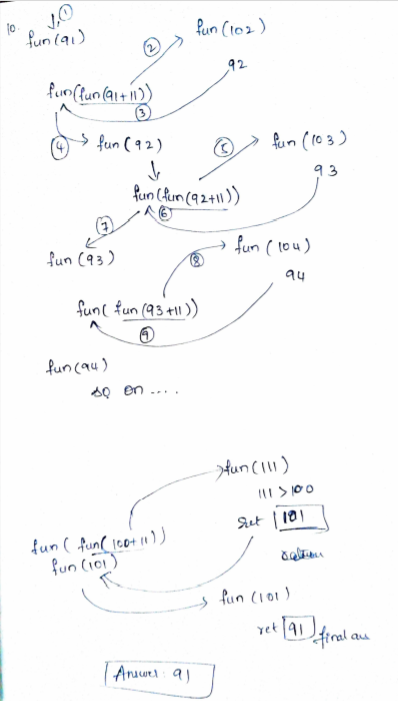 ①
10. fun(91)
② fun(102)
92
fun(fun(91+11))
③
④ fun(92)
⑤ fun(103)
93
fun(fun(92+11))
⑥
⑦
fun(93)
⑧ fun(104)
94
fun(fun(93+11))
⑨
fun(94)
so on ....
fun(111)
111 > 100
ret 101
fun(fun(100+11))
fun(101)
fun(101)
ret 91 final ans
Answer: 91